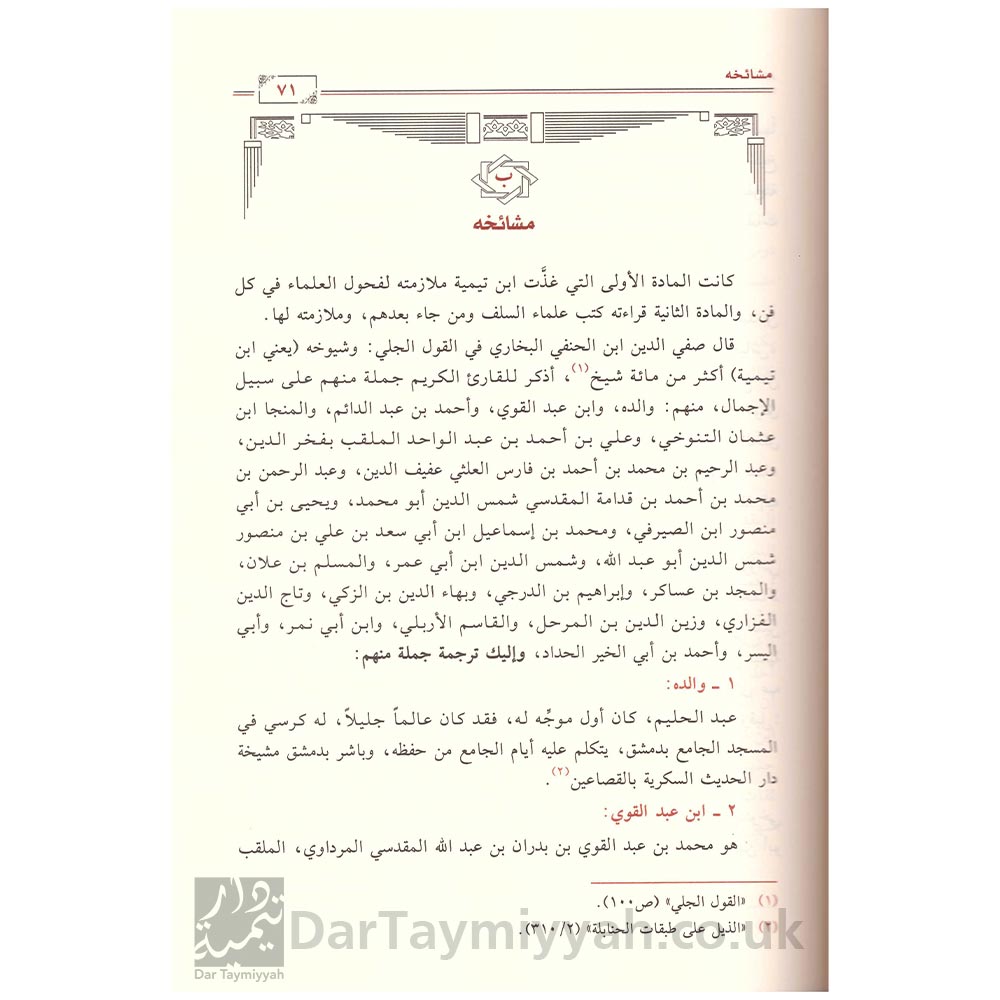 مشائخه
٧١
ب
مشائخه
كانت المادة الأولى التي غذَّت ابن تيمية ملازمته لفحول العلماء في كل
فن، والمادة الثانية قراءته كتب علماء السلف ومن جاء بعدهم، وملازمته لها.
قال صفي الدين ابن الحنفي البخاري في القول الجلي: وشيوخه (يعني ابن
تيمية) أكثر من مائة شيخ(١)، أذكر للقارئ الكريم جملة منهم على سبيل
الإجمال، منهم: والده، وابن عبد القوي، وأحمد بن عبد الدائم، والمنجا ابن
عثمان التنوخي، وعلي بن أحمد بن عبد الواحد الملقب بفخر الدين،
وعبد الرحيم بن محمد بن أحمد بن فارس العلثي عفيف الدين، وعبد الرحمن بن
محمد بن أحمد بن قدامة المقدسي شمس الدين أبو محمد، ويحيى بن أبي
منصور ابن الصيرفي، ومحمد بن إسماعيل ابن أبي سعد بن علي بن منصور
شمس الدين أبو عبد الله، وشمس الدين ابن أبي عمر، والمسلم بن علان،
والمجد بن عساكر، وإبراهيم بن الدرجي، وبهاء الدين بن الزكي، وتاج الدين
الفزاري، وزين الدين بن المرحل، والقاسم الأربلي، وابن أبي نمر، وأبي
اليسر، وأحمد بن أبي الخير الحداد، وإليك ترجمة جملة منهم:
١ ـ والده:
عبد الحليم، كان أول موجِّه له، فقد كان عالماً جليلاً، له كرسي في
المسجد الجامع بدمشق، يتكلم عليه أيام الجامع من حفظه، وباشر بدمشق مشيخة
دار الحديث السكرية بالقصاعين(٢).
٢ ـ ابن عبد القوي:
هو محمد بن عبد القوي بن بدران بن عبد الله المقدسي المرداوي، الملقب
(١) «القول الجلي» (ص١٠٠).
(٢) «الذيل على طبقات الحنابلة» (٣١٠/٢).
دار تيمية
Dar Taymiyyah
DarTaymiyyah.co.uk